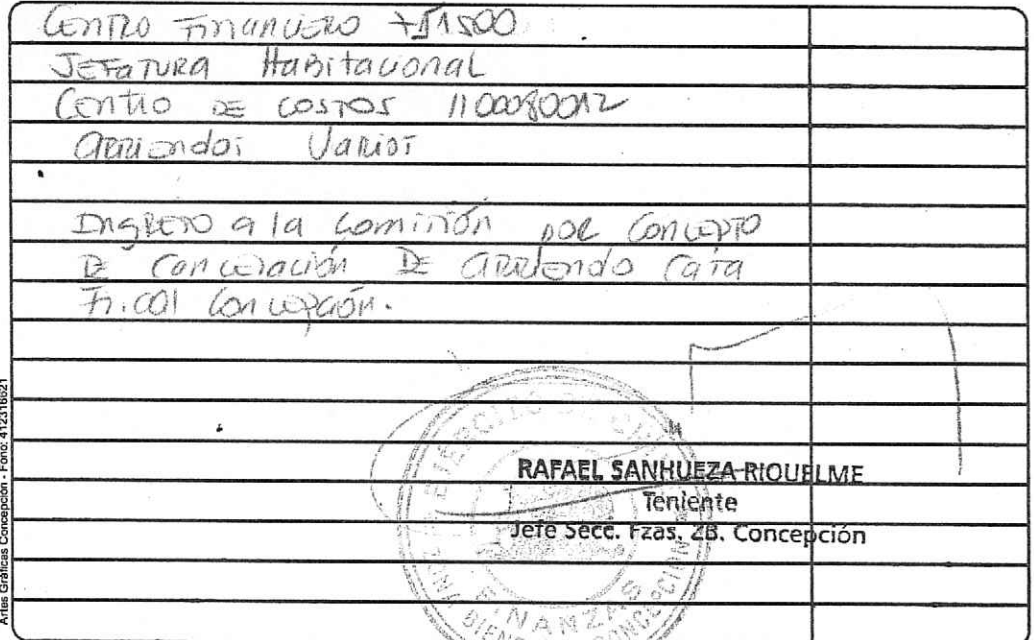 Centro Financiero
Jefatura Habitacional
Centro de costos 1100080012
Arriendos Varios
Ingreso a la Comisión por Concepto
de Cancelación de arriendo Casa
Fiscal Concepción.
RAFAEL SANHUEZA RIQUELME
Teniente
Jefe Secc. Fzas. ZB. Concepción
EJERCITO DE CHILE
FINANZAS
Artes Gráficas Concepción - Fono: 412316621